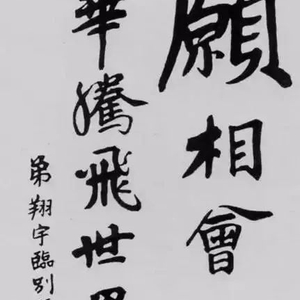 願相會
華騰飛世界
弟翔宇臨別